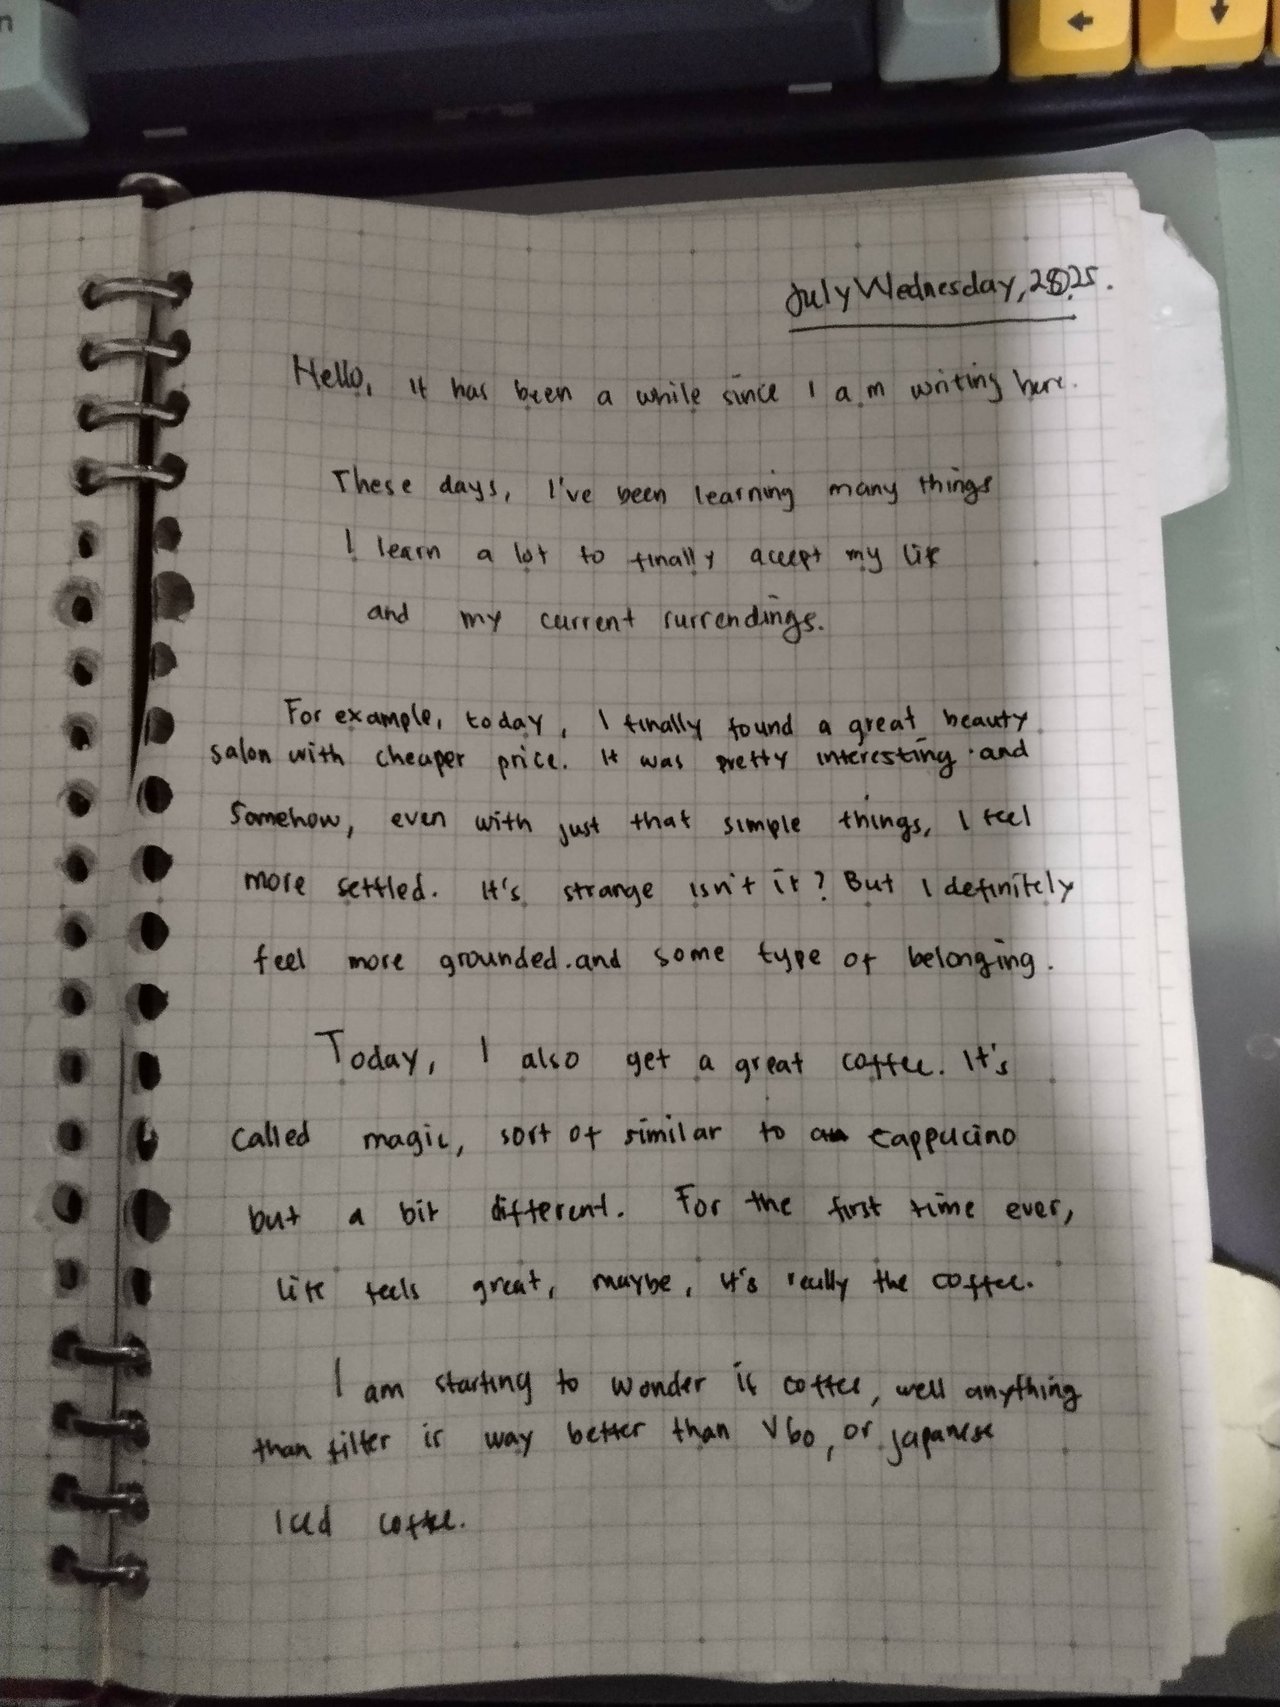 July Wednesday, 2025.
Hello, it has been a while since I am writing here.
These days, I've been learning many things
I learn a lot to finally accept my life
and my current surrendings.
For example, today, I finally found a great beauty
salon with cheaper price. It was pretty interesting and
somehow, even with just that simple things, I feel
more settled. It's strange isn't it? But I definitely
feel more grounded.and some type of belonging.
Today, I also get a great coffee. It's
called magic, sort of similar to a cappucino
but a bit different. For the first time ever,
life feels great, maybe, it's really the coffee.
I am starting to wonder if coffee, well anything
than filter is way better than V60, or japanese
Iced coffee.